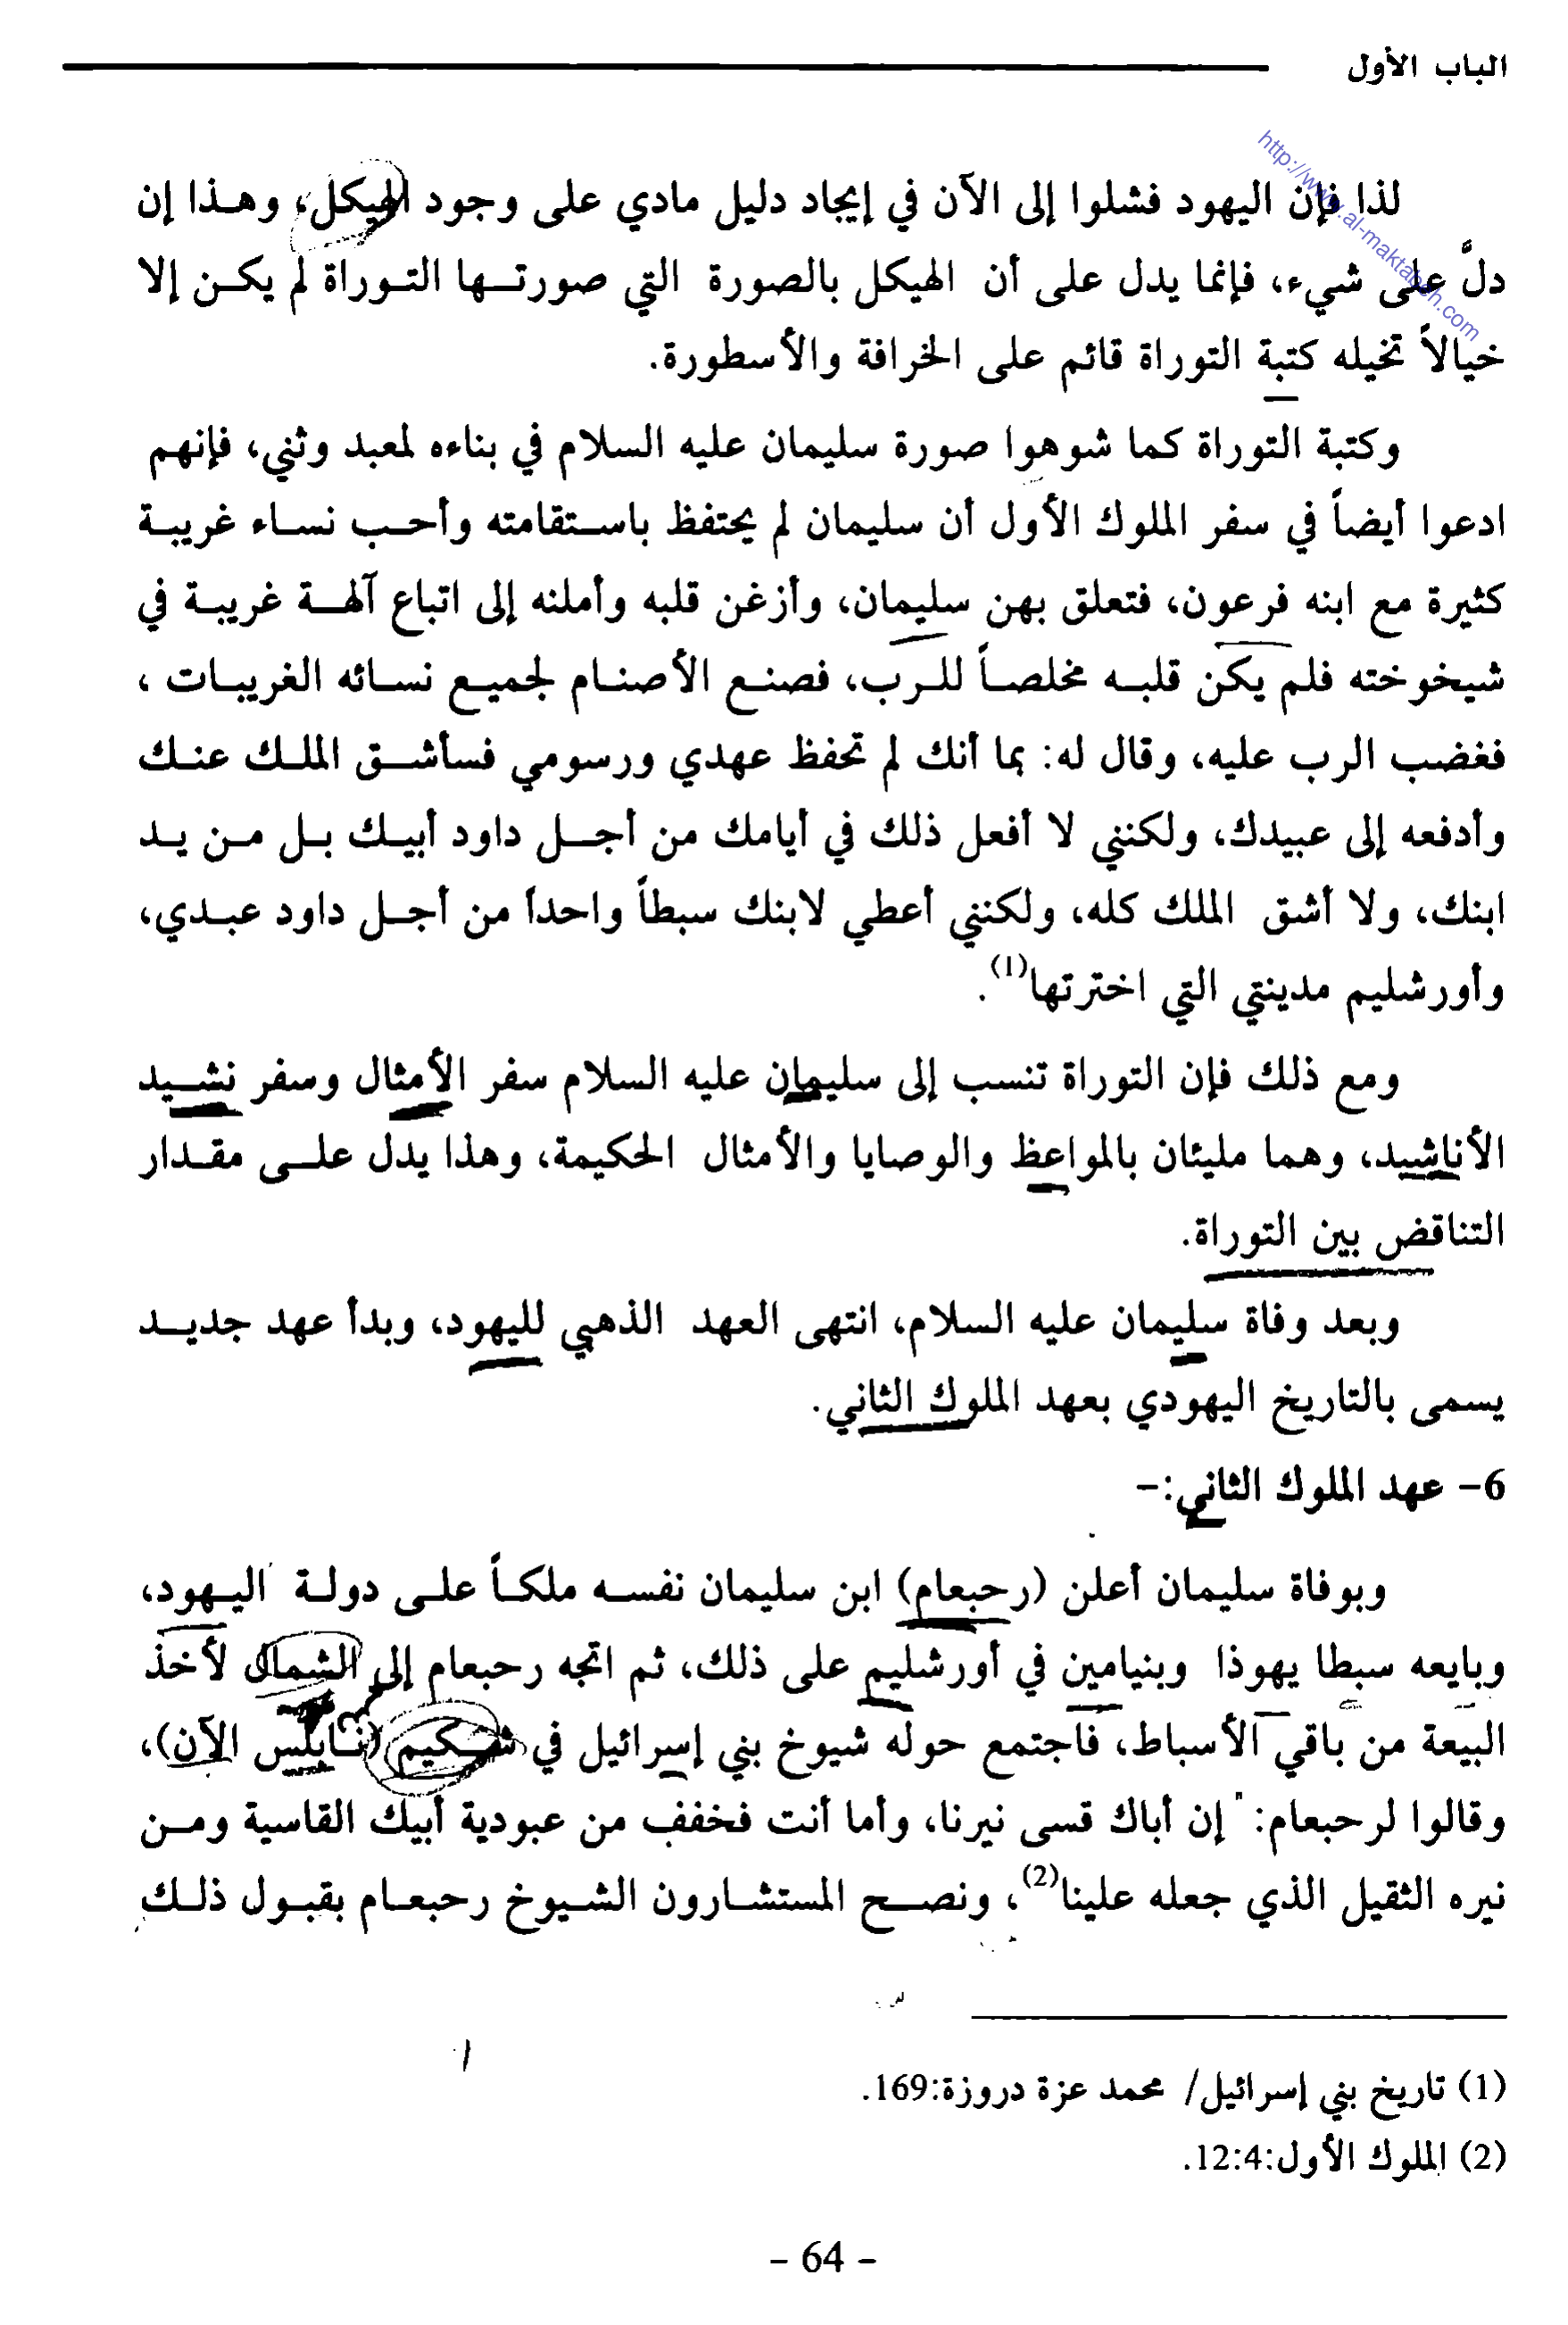 الباب الأول
http://www.al-maktabeh.com
لذا فإن اليهود فشلوا إلى الآن في إيجاد دليل مادي على وجود الهيكل، وهذا إن
دلَّ على شيء، فإنما يدل على أن الهيكل بالصورة التي صورتها التوراة لم يكن إلا
خيالاً تخيله كتبة التوراة قائم على الخرافة والأسطورة.
وكتبة التوراة كما شوهوا صورة سليمان عليه السلام في بناءه لمعبد وثني، فإنهم
ادعوا أيضاً في سفر الملوك الأول أن سليمان لم يحتفظ باستقامته وأحب نساء غريبة
كثيرة مع ابنه فرعون، فتعلق بهن سليمان، وأزغن قلبه وأملنه إلى اتباع آلهة غريبة في
شيخوخته فلم يكن قلبه مخلصاً للرب، فصنع الأصنام لجميع نسائه الغريبات ،
فغضب الرب عليه، وقال له: بما أنك لم تحفظ عهدي ورسومي فسأشق الملك عنك
وأدفعه إلى عبيدك، ولكنني لا أفعل ذلك في أيامك من أجل داود أبيك بل من يد
ابنك، ولا أشق الملك كله، ولكنني أعطي لابنك سبطاً واحداً من أجل داود عبدي،
وأورشليم مدينتي التي اخترتها(1).
ومع ذلك فإن التوراة تنسب إلى سليمان عليه السلام سفر الأمثال وسفر نشيد
الأناشيد، وهما مليئان بالمواعظ والوصايا والأمثال الحكيمة، وهذا يدل على مقدار
التناقض بين التوراة.
وبعد وفاة سليمان عليه السلام، انتهى العهد الذهبي لليهود، وبدأ عهد جديد
يسمى بالتاريخ اليهودي بعهد الملوك الثاني.
6- عهد الملوك الثاني:-
وبوفاة سليمان أعلن (رحبعام) ابن سليمان نفسه ملكاً على دولة اليهود،
وبايعه سبطا يهوذا وبنيامين في أورشليم على ذلك، ثم اتجه رحبعام إلى الشمال لأخذ
البيعة من باقي الأسباط، فاجتمع حوله شيوخ بني إسرائيل في شكيم (نابلس الآن)،
وقالوا لرحبعام: "إن أباك قسى نيرنا، وأما أنت فخفف من عبودية أبيك القاسية ومن
نيره الثقيل الذي جعله علينا(2)، ونصح المستشارون الشيوخ رحبعام بقبول ذلك
(1) تاريخ بني إسرائيل/ محمد عزة دروزة:169.
(2) الملوك الأول:12:4.
- 64 -